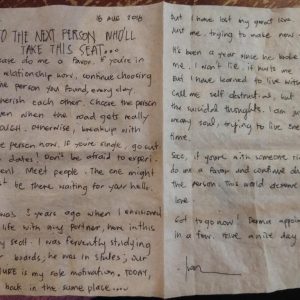 18 AUG 2018
TO THE NEXT PERSON WHO'LL
TAKE THIS SEAT...
please do me a favor. If you're in
relationship now, continue choosing
the person you found, every day.
cherish each other. Choose the person
even when the road gets really
rough. Otherwise, breakup with
the person now. If you're single, go out
dates! Don't be afraid to experi-
ment. Meet people. The one might
be there waiting for your hello.
was 3 years ago when I envisioned
life with my partner, here in this
very seat. I was fervently studying
boards; he was in studies; our
future is my role motivation. TODAY,
back in the same place....
But I have lost my great love
Just me. trying to make new
It's been a year since he broke
me. I won't lie, it hurts me
But I have learned to live with
Call me self destructive, but
the suicidal thoughts. I am
weary soul, trying to live one
time.
Sooo, if you're with someone
do me a favor and continue
the person. This world deserves
love.
Got to go now! Derma appoin
in a few. Have a nice day